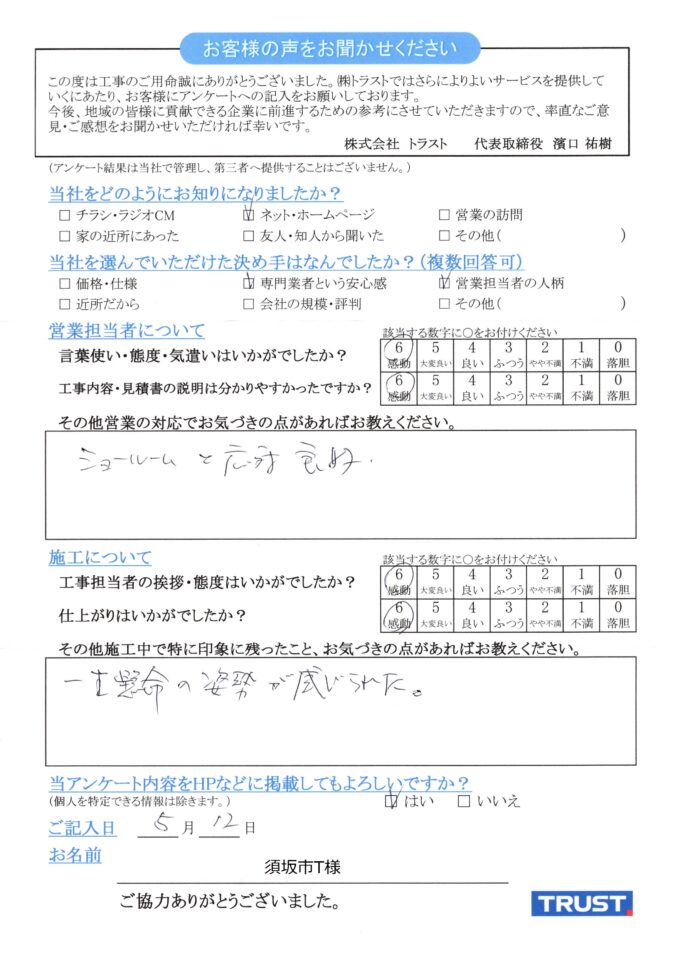 お客様の声をお聞かせください
この度は工事のご用命誠にありがとうございました。㈱トラストではさらによりよいサービスを提供して
いくにあたり、お客様にアンケートへの記入をお願いしております。
今後、地域の皆様に貢献できる企業に前進するための参考にさせていただきますので、率直なご意
見・ご感想をお聞かせいただければ幸いです。
株式会社 トラスト 代表取締役 濱口 祐樹
(アンケート結果は当社で管理し、第三者へ提供することはございません。)
当社をどのようにお知りになりましたか?
□ チラシ・ラジオCM ☑ ネット・ホームページ □ 営業の訪問
□ 家の近所にあった □ 友人・知人から聞いた □ その他( )
当社を選んでいただけた決め手はなんでしたか?(複数回答可)
□ 価格・仕様 ☑ 専門業者という安心感 ☑ 営業担当者の人柄
□ 近所だから □ 会社の規模・評判 □ その他( )
営業担当者について 該当する数字に○をお付けください
言葉使い・態度・気遣いはいかがでしたか? 6 5 4 3 2 1 0
感動 大変良い 良い ふつう やや不満 不満 落胆
工事内容・見積書の説明は分かりやすかったですか? 6 5 4 3 2 1 0
感動 大変良い 良い ふつう やや不満 不満 落胆
その他営業の対応でお気づきの点があればお教えください。
ショールームと応対良好.
施工について 該当する数字に○をお付けください
工事担当者の挨拶・態度はいかがでしたか? 6 5 4 3 2 1 0
感動 大変良い 良い ふつう やや不満 不満 落胆
仕上がりはいかがでしたか? 6 5 4 3 2 1 0
感動 大変良い 良い ふつう やや不満 不満 落胆
その他施工中で特に印象に残ったこと、お気づきの点があればお教えください。
一生懸命の姿勢が感じられた。
当アンケート内容をHPなどに掲載してもよろしいですか?
(個人を特定できる情報は除きます。) ☑ はい □ いいえ
ご記入日 5 月 12 日
お名前
須坂市T様
ご協力ありがとうございました。
TRUST.